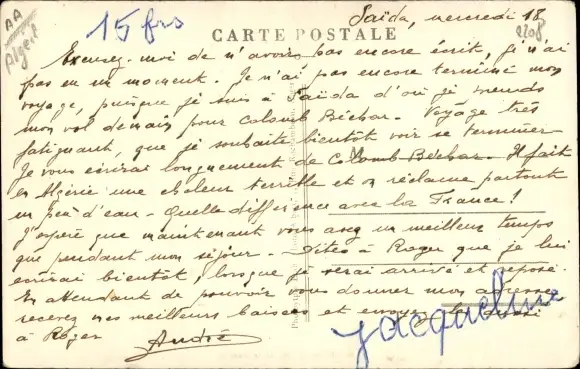 AA
Algérie
15 frs
Saïda, mercredi 18
CARTE POSTALE
Excusez-moi de n'avoir pas encore écrit, je n'ai
pas eu un moment. Je n'ai pas encore terminé mon
voyage, puisque je suis à Saïda d'où je prends
mon vol demain pour Colomb Béchar. Voyage très
fatiguant, que je souhaite bientôt voir se terminer
Je vous écrirai longuement de Colomb-Béchar. Il fait
en Algérie une chaleur terrible et on réclame partout
un peu d'eau - Quelle différence avec la France!
J'espère que maintenant vous avez un meilleur temps
que pendant mon séjour. - Dites à Roger que je lui
écrirai bientôt, lorsque je serai arrivé et reposé.
En attendant de pouvoir vous donner mon adresse
recevez mes meilleurs baisers et envoyez-les aussi
à Roger
André
Jacqueline